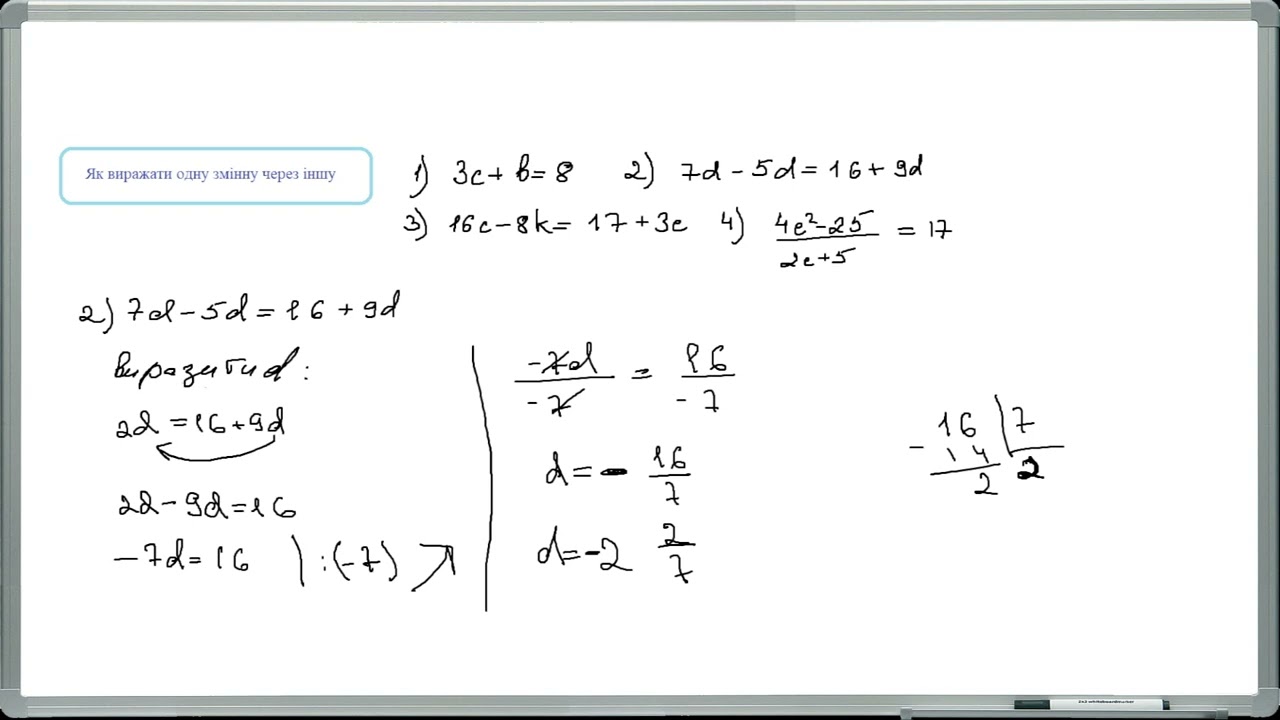 Як виражати одну змінну через іншу
1) 3c + b = 8 2) 7d - 5d = 16 + 9d
3) 16c - 8k = 17 + 3c 4) 4c²-25 / 2c+5 = 17
2) 7d - 5d = 16 + 9d
виразити d:
2d = 16 + 9d
2d - 9d = 16
-7d = 16 | : (-7)
-7d / -7 = 16 / -7
d = - 16/7
d = -2 2/7
16 | 7
- 14 2
2